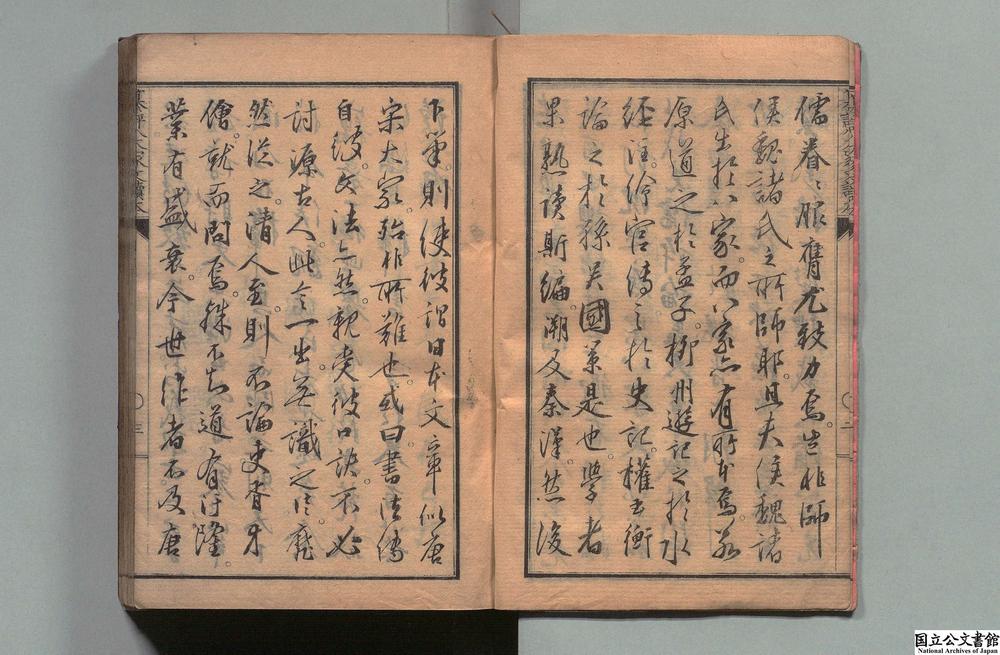 儒眷々服膺尤致力焉。豈非師
侯魏諸氏之所師耶。且夫侯魏諸
氏出於八家。而八家亦有所本焉。若
原道之於孟子。柳州遊記之於水
經注。伶官傳之於史記。權書衡
論之於孫呉國策是也。學者
果熟讀斯編。溯及秦漢。然後
下筆。則使彼謂日本文章似唐
宋大家。殆非所難也。或曰。書法傳
自彼。文法亦然。親受彼口訣。不必
討源古人。此言一出。無識之徒。靡
然從之。清人至。則不論吏胥牙
儈。就而問焉。殊不知道有汙隆。
業有盛衰。今世作者不及唐
〇三
国立公文書館
National Archives of Japan